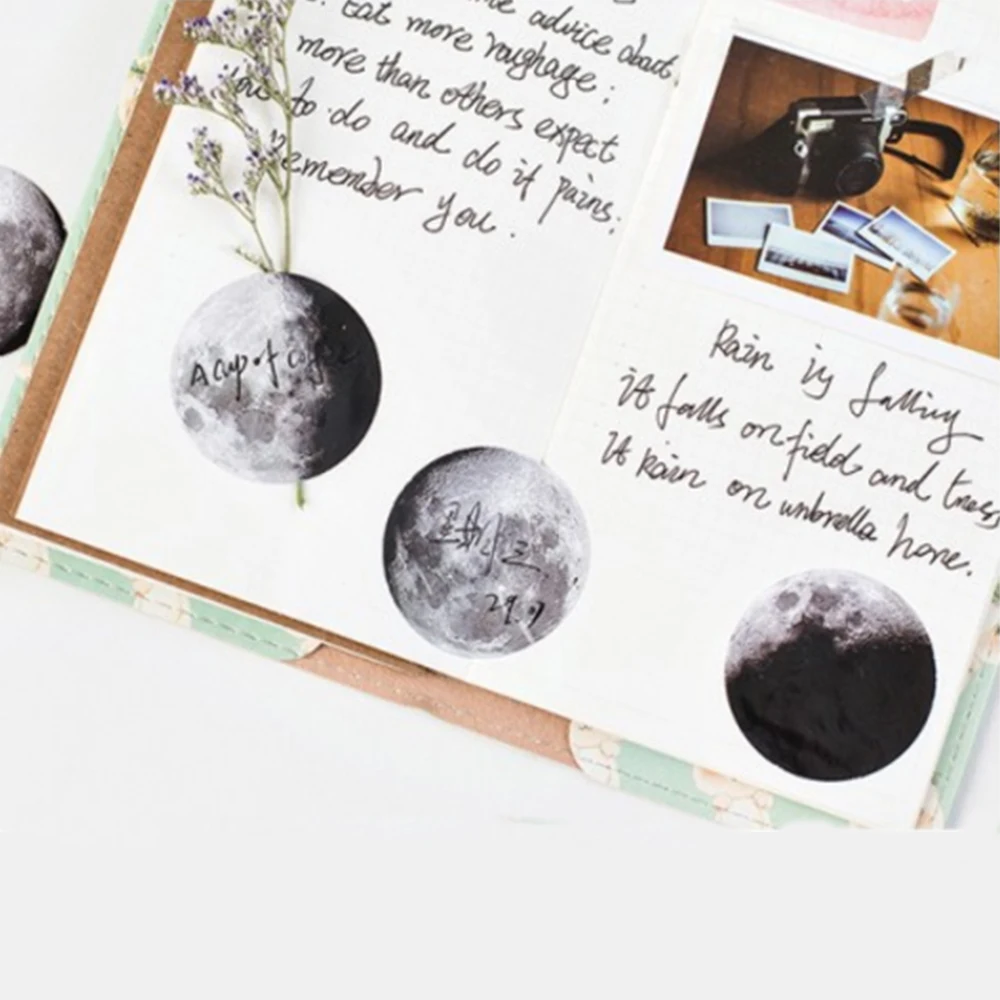 me advice about
. Eat more roughage;
more than others expect
you to do and do it pains;
remember you.
A cup of coffee
星期三
29.9
Rain is falling
it falls on field and trees
It rain on unbrella hone.